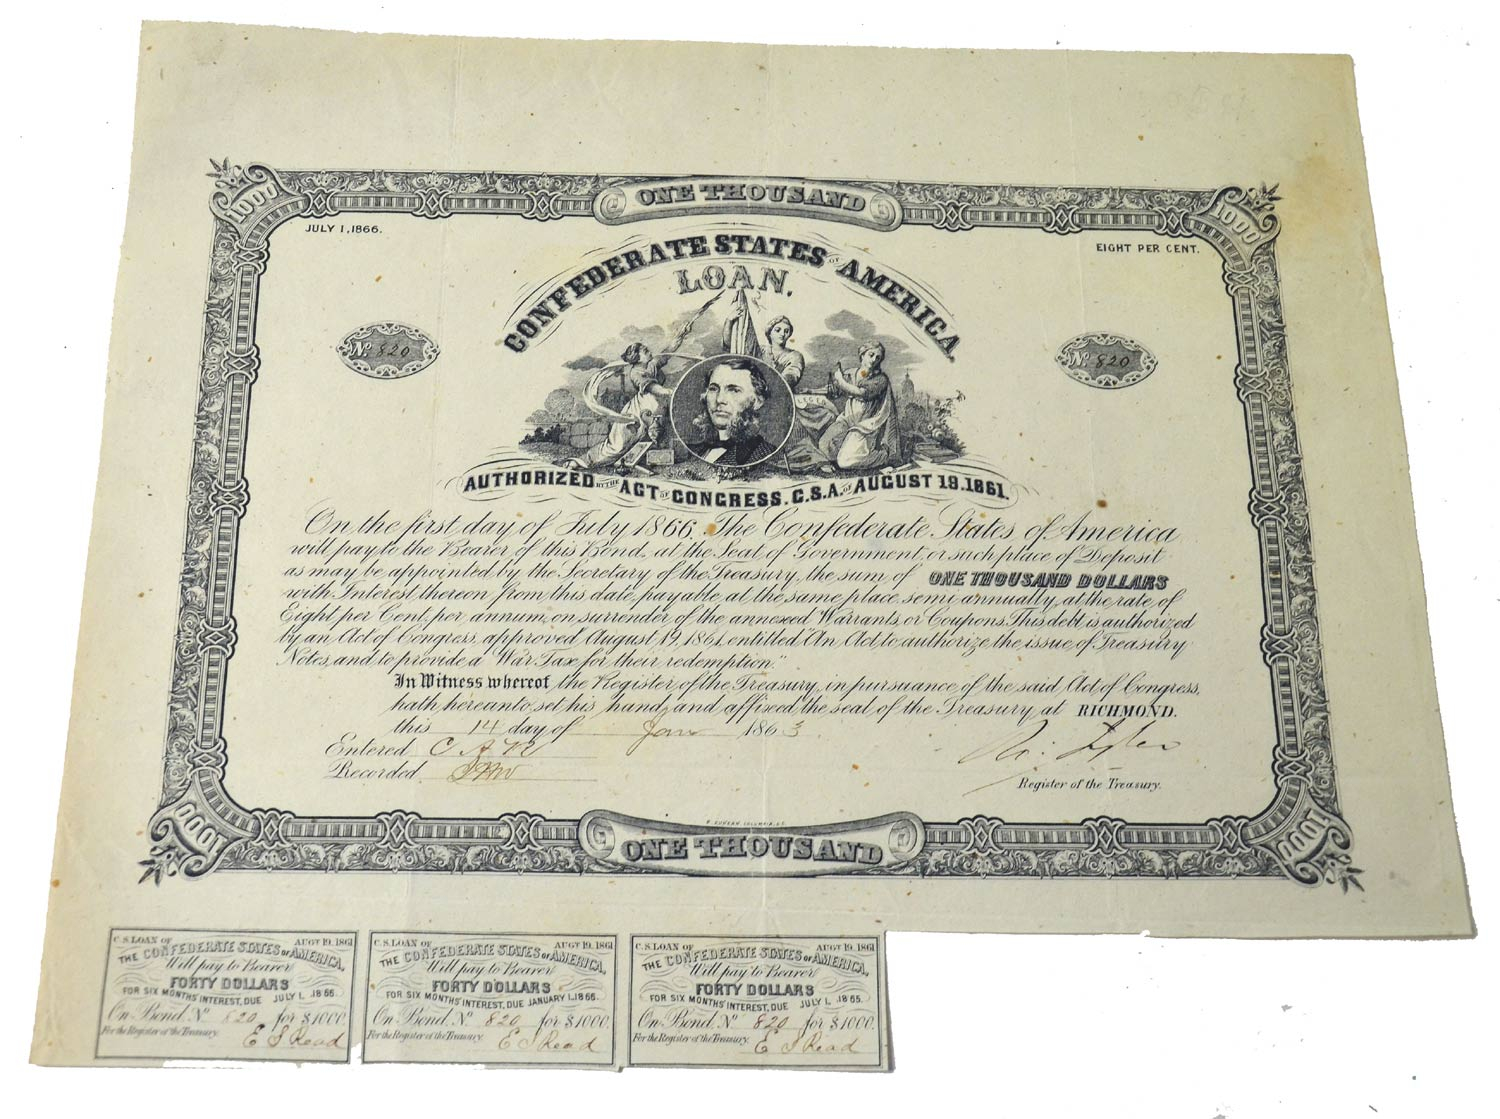 ONE THOUSAND
1000
1000
JULY 1, 1866.
EIGHT PER CENT.
CONFEDERATE STATES OF AMERICA.
LOAN.
No. 820
No. 820
LEGER
AUTHORIZED BY THE ACT OF CONGRESS. C.S.A. OF AUGUST 19. 1861.
On the first day of July 1866. The Confederate States of America
will pay to the Bearer of this Bond, at the Seat of Government, or such place of Deposit
as may be appointed by the Secretary of the Treasury, the sum of ONE THOUSAND DOLLARS
with Interest thereon from this date, payable at the same place, semi-annually, at the rate of
Eight per Cent, per annum, on surrender of the annexed Warrants, or Coupons. This debt is authorized
by an Act of Congress, approved August 19, 1861, entitled "An Act, to authorize the issue of Treasury
Notes, and to provide a War Tax for their redemption."
In Witness whereof the Register of the Treasury, in pursuance of the said Act of Congress,
hath hereunto set his hand, and affixed the seal of the Treasury, at RICHMOND.
this 14 day of Jan 1863
Entered C A R
Recorded
Register of the Treasury.
1000
1000
ONE THOUSAND
C.S. LOAN OF AUGT 19, 1861
THE CONFEDERATE STATES OF AMERICA,
Will pay to Bearer
FORTY DOLLARS
FOR SIX MONTHS' INTEREST, DUE JULY 1. 1866.
On Bond, No 820 for $1000.
For the Register of the Treasury.
E S Read
C.S. LOAN OF AUGT 19, 1861
THE CONFEDERATE STATES OF AMERICA,
Will pay to Bearer
FORTY DOLLARS
FOR SIX MONTHS' INTEREST, DUE JANUARY 1. 1866.
On Bond, No 820 for $1000.
For the Register of the Treasury.
E S Read
C.S. LOAN OF AUGT 19, 1861
THE CONFEDERATE STATES OF AMERICA,
Will pay to Bearer
FORTY DOLLARS
FOR SIX MONTHS' INTEREST, DUE JULY 1. 1865.
On Bond, No 820 for $1000.
For the Register of the Treasury.
E S Read